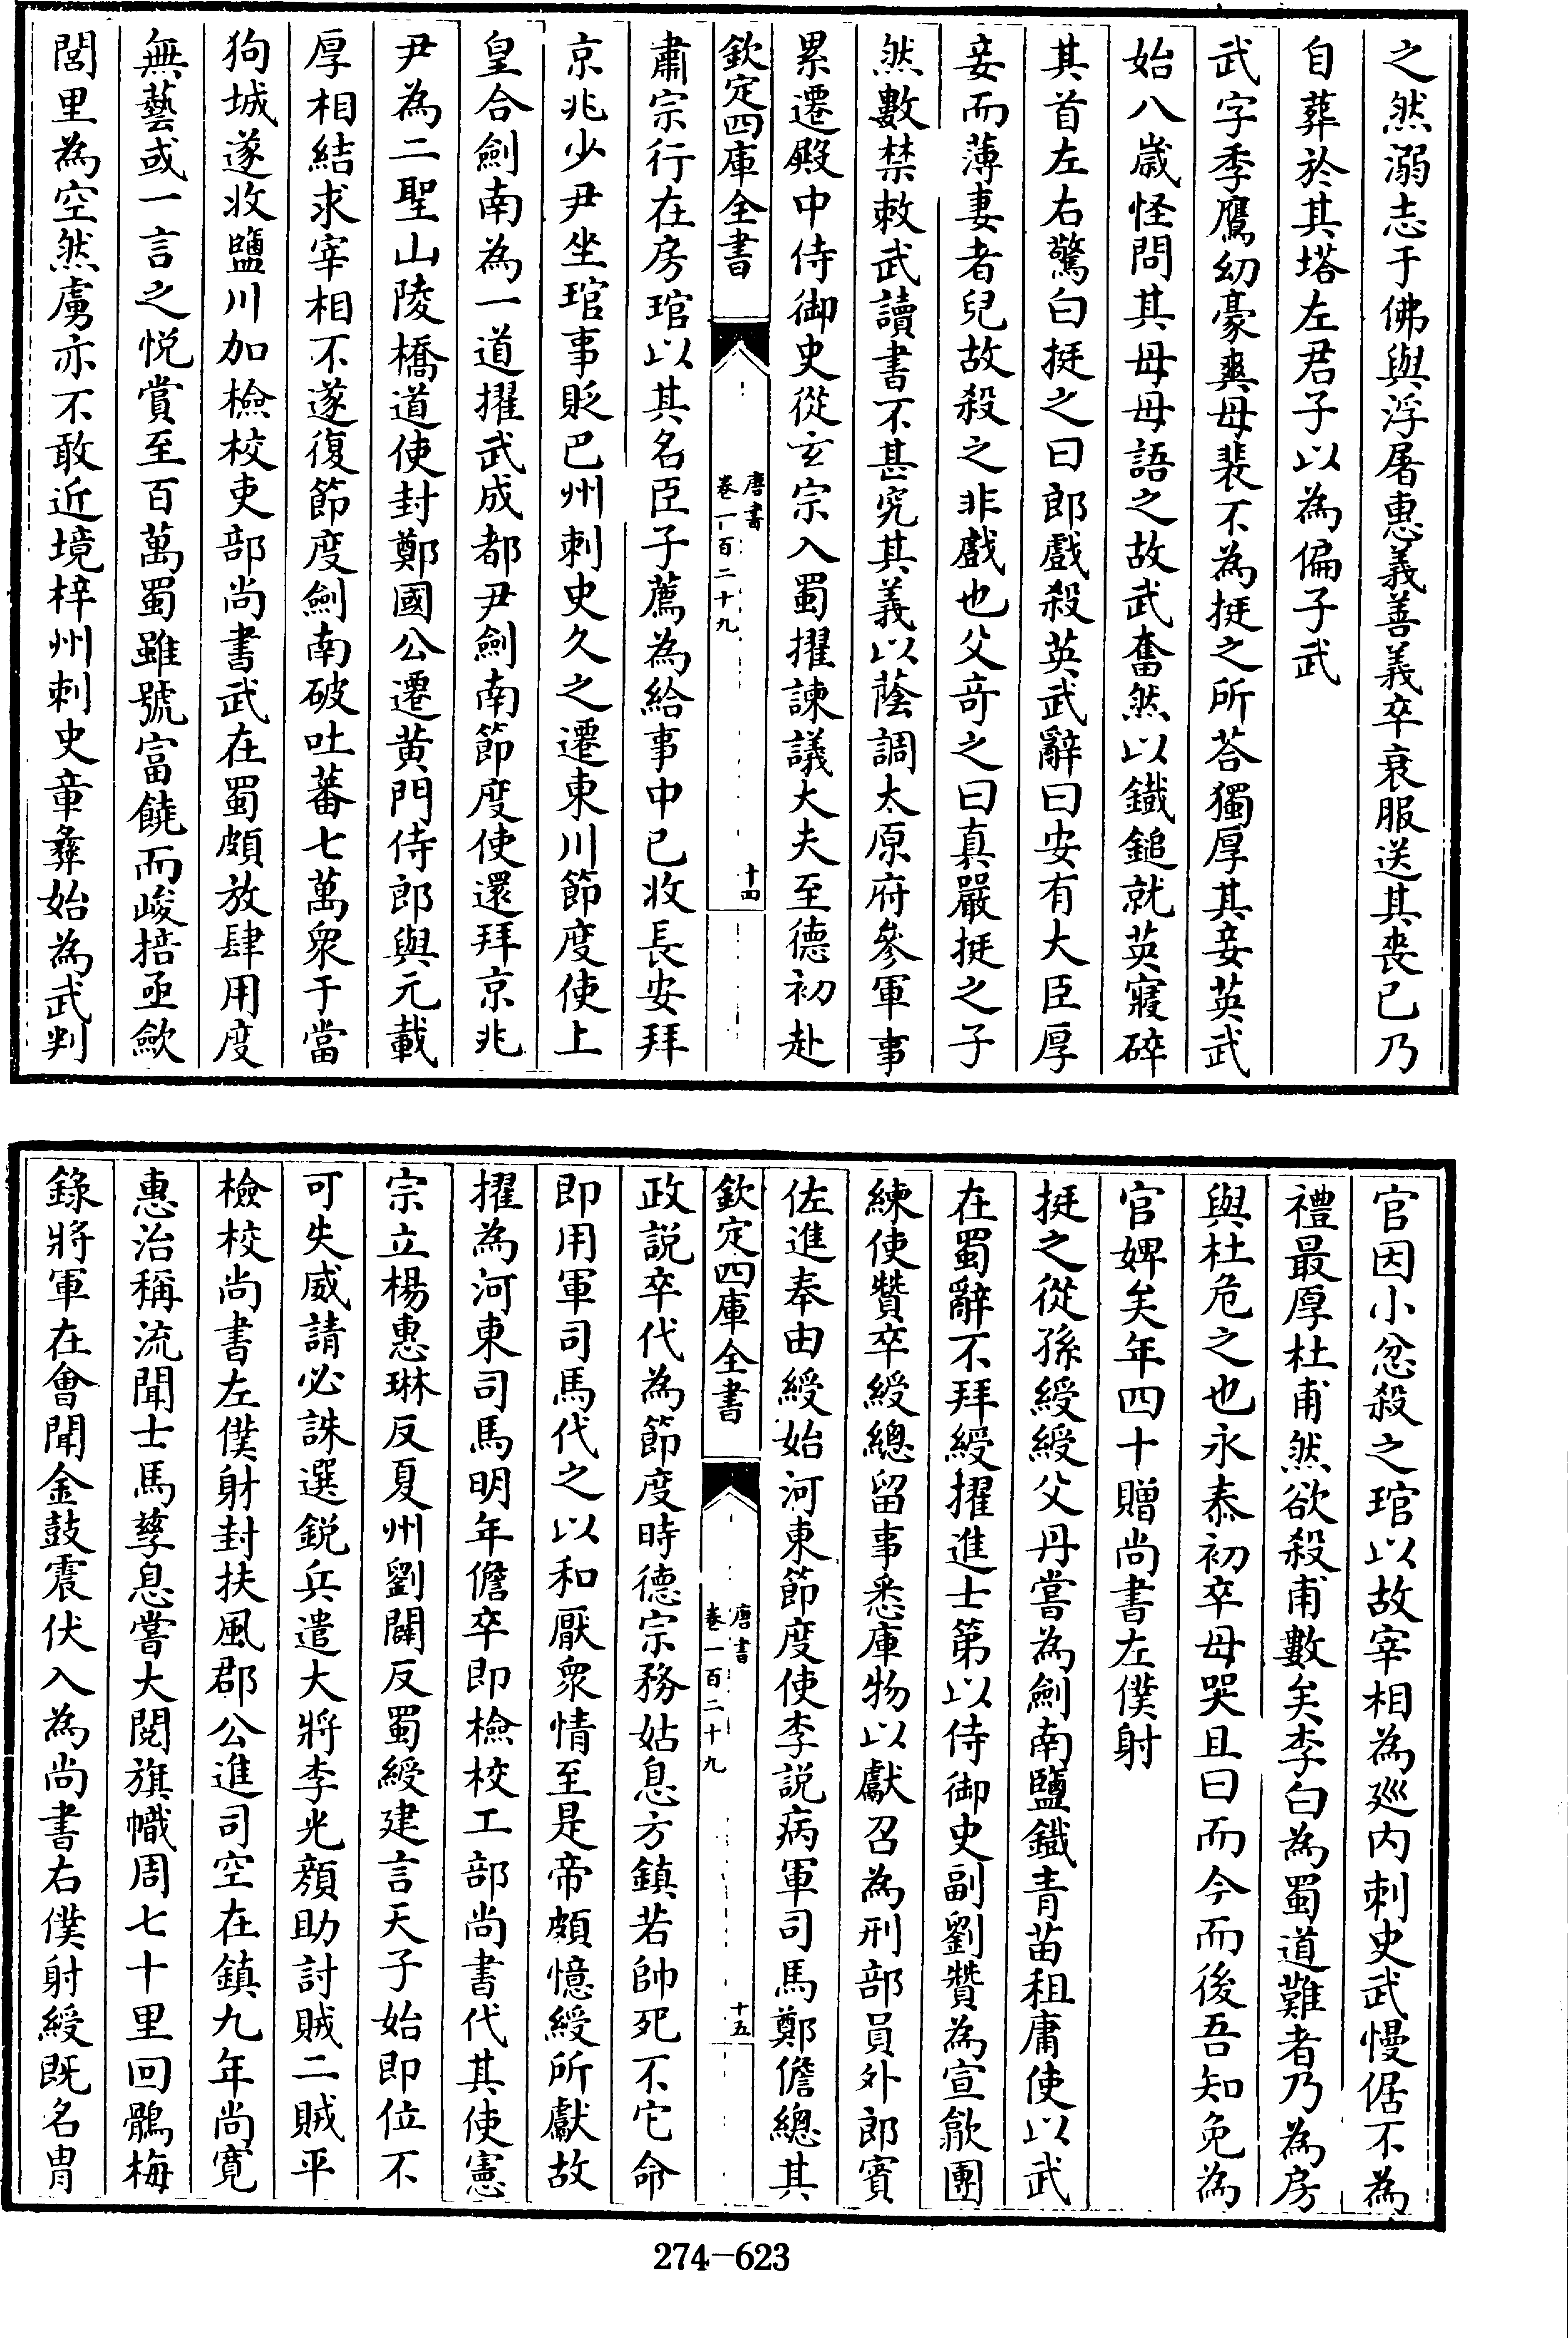 之然溺志于佛與浮屠惠義善義卒衰服送其喪已乃
自葬於其塔左君子以為偏子武
武字季鷹幼豪爽母裴不為挺之所荅獨厚其妾英武
始八歲怪問其母母語之故武奮然以鐵鎚就英寢碎
其首左右驚白挺之曰郎戲殺英武辭曰安有大臣厚
妾而薄妻者兒故殺之非戲也父奇之曰真嚴挺之子
然數禁敕武讀書不甚究其義以蔭調太原府參軍事
累遷殿中侍御史從玄宗入蜀擢諫議大夫至德初赴
欽定四庫全書
唐書
卷一百二十九
十四
肅宗行在房琯以其名臣子薦為給事中已收長安拜
京兆少尹坐琯事貶巴州刺史久之遷東川節度使上
皇合劍南為一道擢武成都尹劍南節度使還拜京兆
尹為二聖山陵橋道使封鄭國公遷黃門侍郎與元載
厚相結求宰相不遂復節度劍南破吐蕃七萬衆于當
狗城遂收鹽川加檢校吏部尚書武在蜀頗放肆用度
無藝或一言之悅賞至百萬蜀雖號富饒而峻掊亟歛
閭里為空然虜亦不敢近境梓州刺史章彝始為武判
官因小忿殺之琯以故宰相為廵內刺史武慢倨不為
禮最厚杜甫然欲殺甫數矣李白為蜀道難者乃為房
與杜危之也永泰初卒母哭且曰而今而後吾知免為
官婢矣年四十贈尚書左僕射
挺之從孫綬綬父丹嘗為劍南鹽鐵青苗租庸使以武
在蜀辭不拜綬擢進士第以侍御史副劉贊為宣歙團
練使贊卒綬總留事悉庫物以獻召為刑部員外郎賓
佐進奉由綬始河東節度使李說病軍司馬鄭儋總其
欽定四庫全書
唐書
卷一百二十九
十五
政說卒代為節度時德宗務姑息方鎮若帥死不它命
即用軍司馬代之以和厭衆情至是帝頗憶綬所獻故
擢為河東司馬明年儋卒即檢校工部尚書代其使憲
宗立楊惠琳反夏州劉闢反蜀綬建言天子始即位不
可失威請必誅選銳兵遣大將李光顏助討賊二賊平
檢校尚書左僕射封扶風郡公進司空在鎮九年尚寬
惠治稱流聞士馬孳息嘗大閱旗幟周七十里回鶻梅
錄將軍在會聞金鼓震伏入為尚書右僕射綬既名胄
274—623